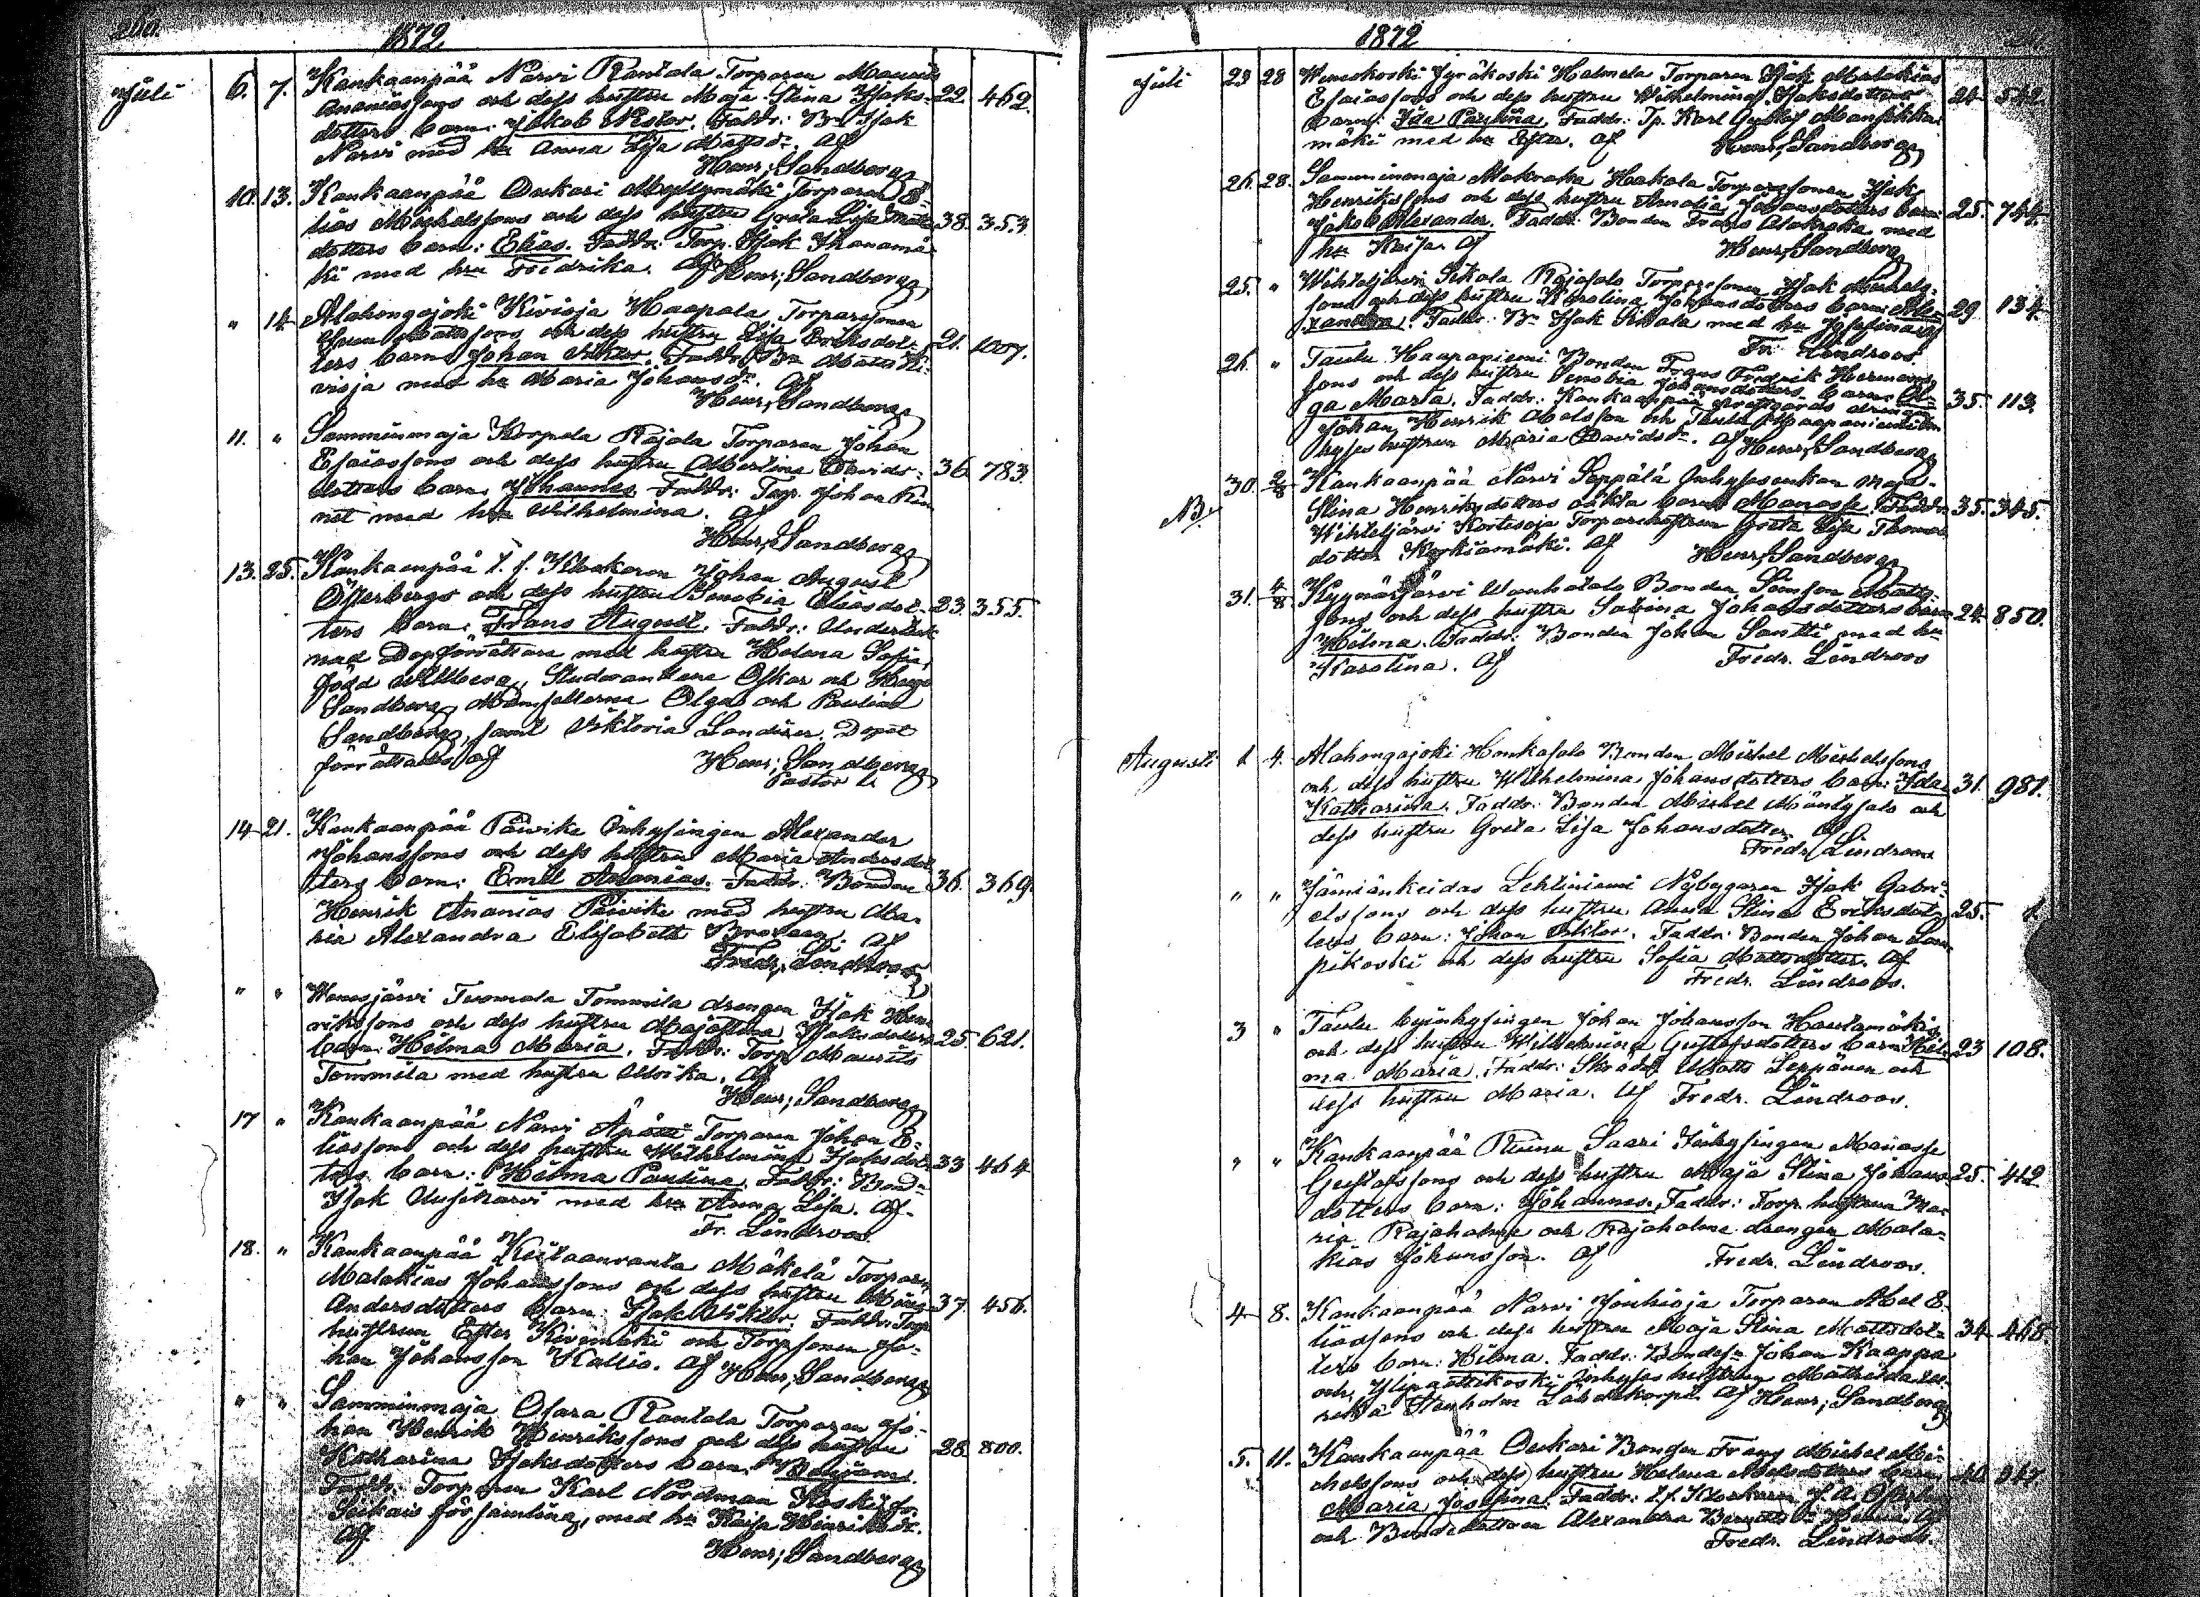 1872
Juli 6. 7. Kankaanpää Narvi Rantala Torparen Maurits
Ananiassons och dess hustru Maja Stina Isaks- 22. 462.
dotters barn: Jakob Nestor. Faddr: Bn Isak
Narvi med hu Anna Lisa Mattsdr. Af
Henr; Sandberg
10. 13. Kankaanpää Onkari Myllymäki Torparen E-
lias Michelssons och dess hustru Greta Lisa Matts 38. 353
dotters barn: Elias. Faddr: Torp. Isak Ihanamä-
ki med hru Fredrika. Af Henr; Sandberg
" 14 Alahongojoki Kivioja Haapala Torparesonen
Mattssons och dess hustru Lisa Eriksdot- 21. 1007.
ters barn Johan Viktor. Faddr: Bn Matts Ki-
vioja med hu Maria Johansdr. Af
Henr; Sandberg
11. " Samminmaja Korpela Rajala Torparen Johan
Esaiassons och dess hustru Albertina Davids- 36. 783.
dotters barn. Johannes. Faddr: Torp. Johan
med hu Wilhelmina. Af
Henr; Sandberg
13. 25. Kankaanpää t. f. Klockaren Johan August
Österbergs och dess hustru Senobia Eliasdot- 23. 355.
ters barn: Frans August. Faddr: Underteck-
nad Dopförrättare med hustru Helena Sofia,
född Willberg, Studerandene Oskar och Hugo
Sandberg, Mamsellerna Olga och Paulina
Sandberg, samt Viktoria Landzer. Dopet
förrättades af Henr; Sandberg
Pastor L.
14 21. Kankaanpää Päivike Inhysingen Alexander
Johanssons och dess hustru Maria Andersdot
ters barn: Emil Ananias. Faddr: Bonden 36. 369
Henrik Ananias Päivike med hustru Ma-
ria Alexandra Elisabeth Af
Fredr; Lindroos
" " Wenesjärvi Tuomala Tommila drengen Isak Hen-
rikssons och dess hustru Majastina Isaksdotters 25. 621.
barn: Hilma Maria. Faddr: Torp Maurits
Tommila med hustru Ulrika. Af
Henr; Sandberg
17 " Kankaanpää Narvi Torparen Johan E-
liassons och dess hustru Wilhelmina Isaksdot- 33 464
ters barn: Hilma Paulina. Faddr: Bond-
Isak Uusikarvi med hru Anna Lisa. Af
Fr. Lindroos
18. " Kankaanpää Keitaanranta Mäkelä Torparen
Malakias Johanssons och dess hustru Maria 37. 456.
Andersdotters barn: Isak Viktor. Faddr: Torp
hustrun Ester Kivimäki och Torpsonen Jo-
han Johansson Kallio. Af Henr; Sandberg
" " Samminmaja Osara Rantala Torparen Jo-
han Henrik Henrikssons och dess hustru 28. 800.
Katharina Isaksdotters barn: Benjam.
Faddr: Torparen Karl Nordman Koski fr.
Siikais församling, med hu Kaisa Henriksdr.
Af Henr; Sandberg
1872
Juli 23 28 Weneskoski Jyräkoski Holmela Torparen Isak Malakias
Esaiassons och dess hustru Wilhelmina Isaksdotters 24. 542
barn: Ida Paulina. Faddr: Tp. Karl Gustaf Mansikka-
mäki med hu Ester. Af Henr; Sandberg
26. 28. Samminmaja Alakraka Hakala Torparesonen Isak
Henrikssons och dess hustru Amalia Johansdotters barn: 25. 744.
Jakob Alexander. Faddr: Bonden Frans Alakraka med
hu Kaisa. Af Henr; Sandberg
25. " Wihteljärvi Sikala Rajasalo Torparesonen Isak Michels-
sons och dess hustru Karolina Johansdotters barn: Ale- 29. 134.
xandra. Faddr: Bn Isak Sikala med hu Josefina. Af
Fr: Lindroos
26. " Taulu Haapaniemi Bonden Frans Fredrik Hermans-
sons och dess hustru Senobia Johansdotters barn: Ol- 35. 113.
ga Maria. Faddr: Kankaanpää prestgårds drengen
Johan Henrik Abelsson och Taulu Haapaniemi
hyses hustrun Maria Davidsdr. Af Henr; Sandberg
NB. 30. 2/8 Kankaanpää Narvi Seppälä Inhysesenkan Maja
Stina Henriksdotters oäkta barn: Manasse. Faddr: 35. 345.
Wihteljärvi Kortesoja Torparehustrun Greta Lisa Thomas
dotter Korkiamäki. Af Henr; Sandberg
31. 4/8 Kyynärjärvi Wanhatalo Bonden Samson Matts-
sons och dess hustru Sabina Johansdotters barn 24. 850.
Hilma. Faddr: Bonden Johan Santti med hu
Karolina. Af Fredr. Lindroos
Augusti 1 4. Alahongojoki Honkasalo Bonden Michel Michelssons
och dess hustru Wilhelmina Johansdotters barn: Ida 31. 981.
Katharina. Faddr: Bonden Michel Mäntysalo och
dess hustru Greta Lisa Johansdotter. Af
Fredr. Lindroos
" " Jämiänkeidas Lehtiniemi Nybyggaren Isak Gabri-
elssons och dess hustru Anna Stina Eriksdot- 25. 1.
ters barn: Johan Viktor. Faddr: Bonden Johan Lam-
pikoski och dess hustru Sofia Mattsdotter. Af
Fredr. Lindroos.
3 " Taulu byinhysingen Johan Johansson Hautamäkis
och dess hustru Wilhelmina Gustafsdotters barn: Hil- 23 108.
ma Maria. Faddr: Skräddr Matts Leppänen och
dess hustru Maria. Af Fredr. Lindroos.
" " Kankaanpää Ruinu Saari Inhysingen Manasse
Gustafssons och dess hustru Maja Stina Johans- 25. 412
dotters barn: Johannes. Faddr: Torp. hustrun Ma-
ria Rajaholma och Rajaholma drengen Mala-
kias Johansson. Af Fredr. Lindroos.
4 8. Kankaanpää Narvi Jouhioja Torparen Abel E-
liassons och dess hustru Maja Stina Mattsdot- 34 468.
ters barn: Hilma. Faddr: Bondesn Johan Kaappa
och Inhyses hustrun Mathilda Ul-
rika Stenholm Lähdekorpi. Af Henr; Sandberg
5. 11. Kankaanpää Onkari Bonden Frans Michel Mi-
chelssons och dess hustru Helena Abelsdotters barn: 40. 347.
Maria Josefina. Faddr: t.f. Klockaren J. A. Österberg
och Bondedottern Alexandra
Fredr. Lindroos.